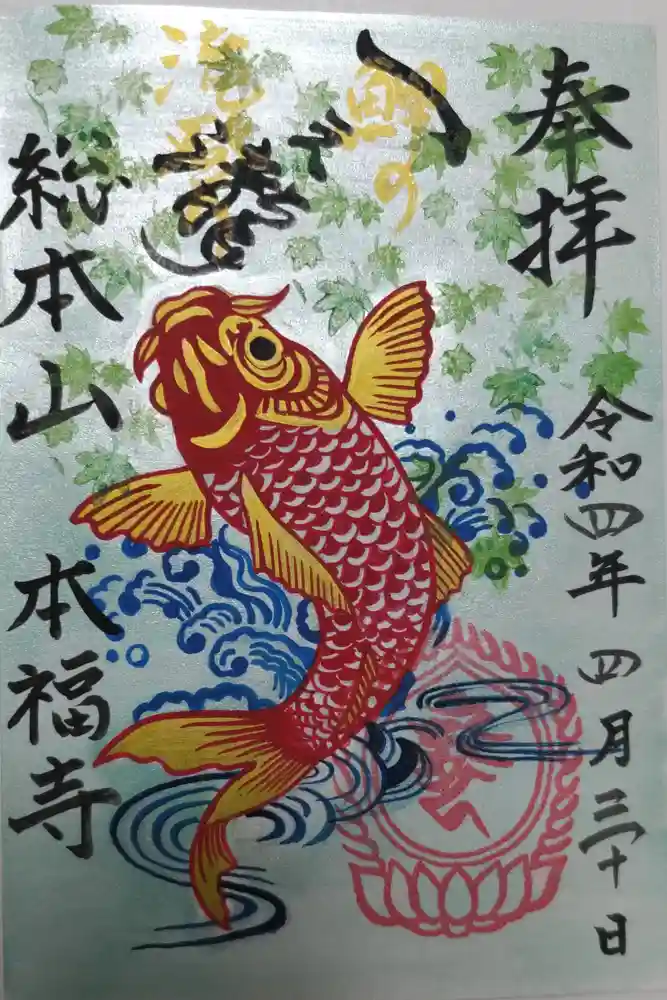 奉拝
令和四年 四月三十日
鯉の
滝
総本山 本福寺